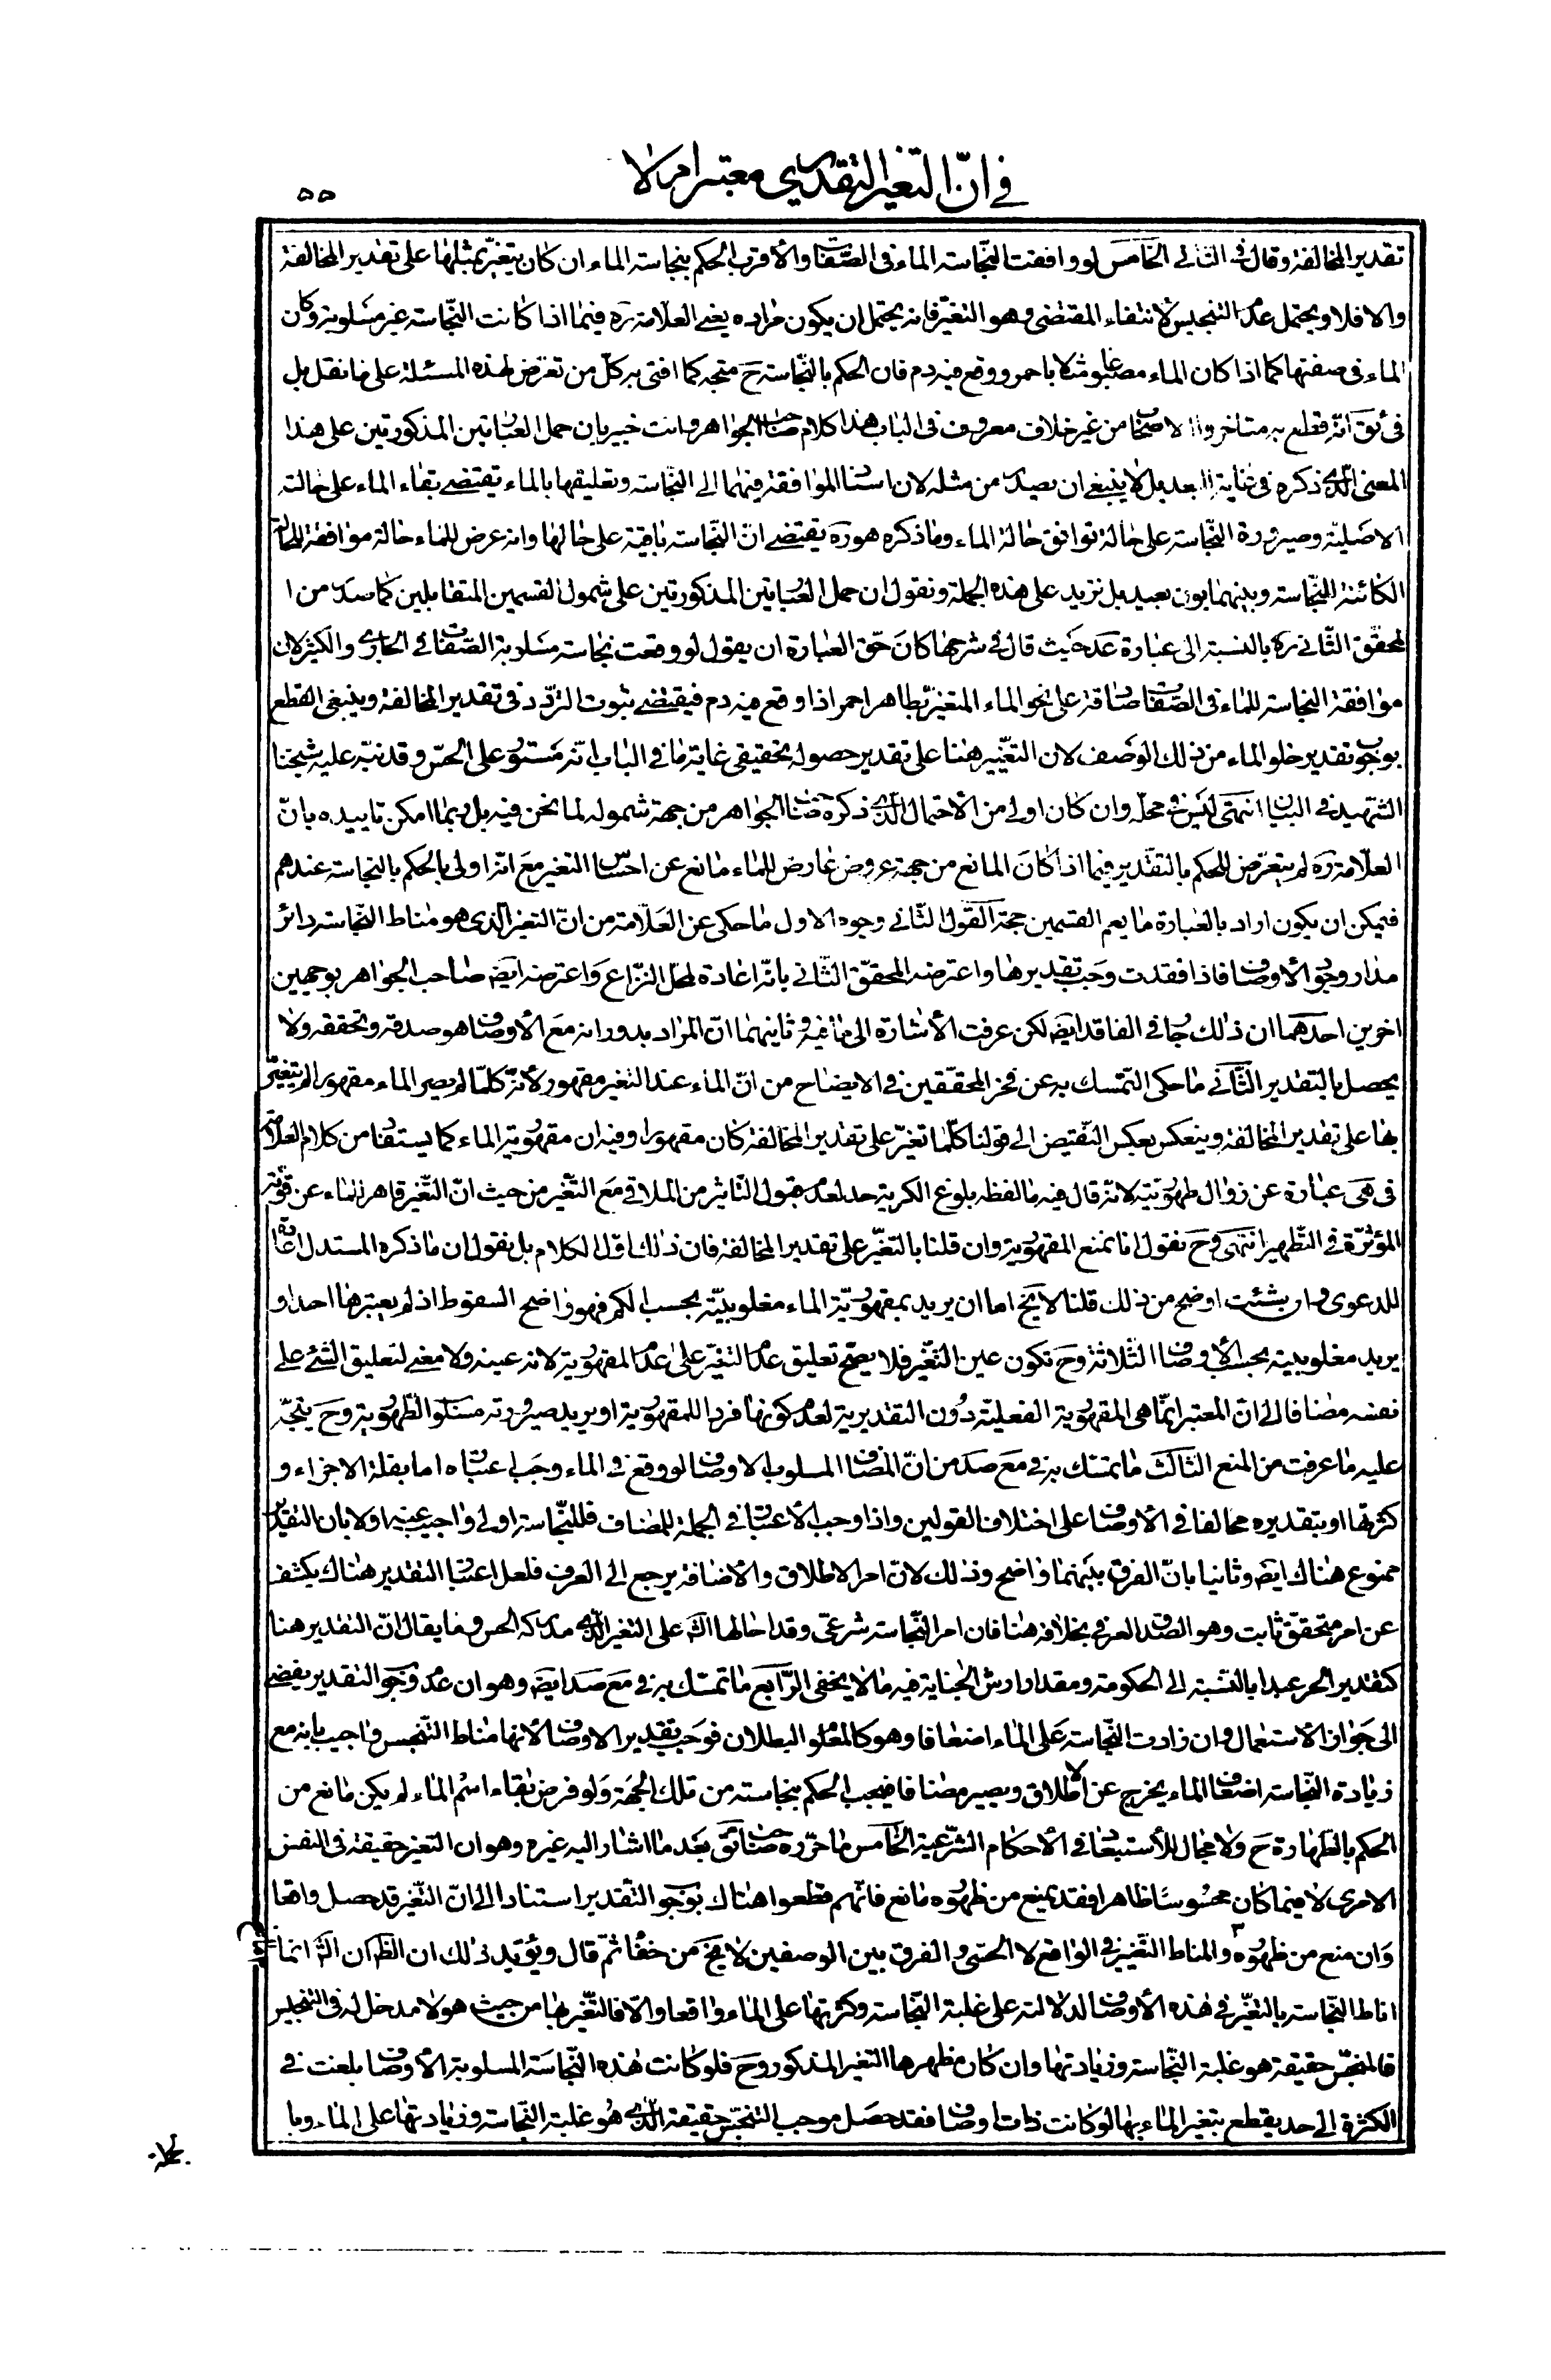 في انّ التغير التقديري معتبر ام لا
٥٥
تقدير المخالفة وقال في الثاني الخامس لو وافقت النّجاسة الماء في الصّفات والأقرب الحكم بنجاسة الماء ان كان يتغيّر بمثلها على تقدير المخالفة
والا فلا ويحتمل عدم التنجيس لانتفاء المقتضى وهو التغيّر فانه يحتمل ان يكون مراده يعني العلّامة ره فيما اذا كانت النّجاسة غير مسلوبة وكان
الماء في صفتها كما اذا كان الماء مصبوغا مثلا باحمر ووقع فيه دم فان الحكم بالنّجاسة ح متجه كما افتى به كلّ من تعرّض لهذه المسئلة على ما نقل بل
في ئق انّه قطع به متاخروا الاصحاب من غير خلاف معروف في الباب هذا كلام صاحب الجواهر وانت خبير بان حمل العبارتين المذكورتين على هذا
المعنى الّذي ذكره في غاية البعد بل لا ينبغي ان يصدر من مثله لان اسناد الموافقة فيهما الى النّجاسة وتعليقها بالماء يقتضي بقاء الماء على حالته
الاصليّة وصيرورة النّجاسة على حالة توافق حالة الماء وما ذكره هو ره يقتضي انّ النّجاسة باقية على حالها وانه عرض للماء حالة موافقة للحالة
الكائنة للنّجاسة وبينهما بون بعيد بل نزيد على هذه الجملة ونقول ان حمل العبارتين المذكورتين على شمول القسمين المتقابلين كما صدر من ا
لمحقّق الثّاني ره بالنسبة الى عبارة عد حيث قال في شرحها كان حقّ العبارة ان يقول لو وقعت نجاسة مسلوبة الصّفات في الجاري والكثير لان
موافقة النجاسة للماء في الصّفات صادقة على نحو الماء المتغيّر بطاهر احمر اذا وقع فيه دم فيقتضي ثبوت التردّد في تقدير المخالفة وينبغي القطع
بوجوب تقدير خلو الماء من ذلك الوصف لان التغيّر هنا على تقدير حصوله تحقيقي غاية ما في الباب انّه مستور على الحسّ وقد نبّه عليه شيخنا
الشّهيد في البيان انتهى ليس في محلّه وان كان اولى من الاحتمال الّذي ذكره صاحب الجواهر من جهة شموله لما نحن فيه بل ربما امكن تاييده بانّ
العلّامة ره لم يتعرّض للحكم بالتّقدير فيما اذا كان المانع من جهة عروض عارض للماء مانع عن احساس التغير مع انّه اولى بالحكم بالنجاسة عندهم
فيمكن ان يكون اراد بالعبارة ما يعم القسمين حجة القول الثّاني وجوه الاول ما حكى عن العلّامة من انّ التغير الّذي هو مناط النّجاسة دائر
مدار وجود الأوصاف فاذا فقدت وجب تقديرها واعترضه المحقّق الثّاني بانّه اعادة لمحل النّزاع واعترضه ايضا صاحب الجواهر بوجهين
اخرين احدهما ان ذلك جار في الفاقد ايضا لكن عرفت الأشارة الى ما فيه وثانيهما انّ المراد بدورانه مع الأوصاف هو صدقه وتحققه ولا
يحصل بالتقدير الثّاني ما حكى التّمسك به عن فخر المحقّقين في الايضاح من انّ الماء عند التغير مقهور لأنّه كلّما لم يصر الماء مقهورا لم يتغيّر
بها على تقدير المخالفة وينعكس بعكس النّقيض الى قولنا كلّما تغيّر على تقدير المخالفة كان مقهورا وفيه ان مقهوريّة الماء كما يستفاد من كلام العلّامة
في هى عبارة عن زوال طهوريّته لانّه قال فيه ما لفظه بلوغ الكرية حد لعدم قبول التّاثير من الملاقي مع التّغير من حيث انّ التّغير قاهر للماء عن قوّته
المؤثّرة في التّطهير انتهى وح نقول انا نمنع المقهوريّة وان قلنا بالتغيّر على تقدير المخالفة فان ذلك اوّل الكلام بل نقول ان ما ذكره المستدل اعادة
للدعوى وان شئت اوضح من ذلك قلنا لا يخ اما ان يريد بمقهوريّة الماء مغلوبيّته بحسب الكم فهو واضح السقوط اذ لم يعتبرها احد او
يريد مغلوبيته بحسب الأوصاف الثّلاثة وح تكون عين التّغيّر فلا يصحّ تعليق عدم التغيّر على عدم المقهوريّة لانه عينه ولا معنى لتعليق الشّئ على
نفسه مضافا الى انّ المعتبر انّما هي المقهوريّة الفعليّة دون التقديرية لعدم كونها فردا للمقهوريّة او يريد صيرورته مسلوب الطّهوريّة وح يتجّه
عليه ما عرفت من المنع الثّالث ما تمسّك به في مع صد من انّ المضاف المسلوب الاوصاف لو وقع في الماء وجب اعتباره اما بقلة الاجزاء و
كثرتها او بتقديره مخالفا في الأوصاف على اختلاف القولين واذا وجب الاعتبار في الجملة للمضاف فللنّجاسة اولى واجيب عنه اولا بان التقدير
ممنوع هناك ايضا وثانيا بانّ الفرق بينهما واضح وذلك لانّ امر الاطلاق والأضافة يرجع الى العرف فلعل اعتبار التقدير هناك يكشف
عن امر متحقّق ثابت وهو الصّدق العرفي بخلافه هنا فان امر النّجاسة شرعيّ وقد احالها الشّ على التغير الّذي مدركه الحس وما يقال انّ التقدير هنا
كتقدير الحر عبدا بالنّسبة الى الحكومة ومقدار ارش الجناية فيه ما لا يخفى الرّابع ما تمسّك به في مع صد ايضا وهو ان عدم وجوب التقدير يفضي
الى جواز الأستعمال وان زادت النّجاسة على الماء اضعافا وهو كالمعلوم البطلان فوجب تقدير الاوصاف لأنها مناط التّنجس واجيب بانه مع
زيادة النّجاسة اضعاف الماء يخرج عن الاطلاق ويصير مضافا فيجب الحكم بنجاسته من تلك الجهة ولو فرض بقاء اسم الماء لم يكن مانع من
الحكم بالطّهارة ح ولا مجال للأستبعاد في الأحكام الشّرعية الخامس ما حرّره صاحب ئق بعد ما اشار اليه غيره وهو ان التغير حقيقة في النفس
الامري لا فيما كان محسوسا ظاهرا فقد يمنع من ظهوره مانع فانّهم قطعوا هناك بوجوب التّقدير استنادا الى انّ التّغير قد حصل واقعا
وان منع من ظهوره والمناط التّغيير في الواقع لا الحسّي والفرق بين الوصفين لا يخ من خفاء ثمّ قال ويؤيد ذلك ان الظ ان الشّ انما
اناط النّجاسة بالتغيّر في هذه الأوصاف لدلالته على غلبة النّجاسة وكثرتها على الماء واقعا والّا فالتّغير بها من حيث هو لا مدخل له في التنجيس
فالمنجّس حقيقة هو غلبة النّجاسة وزيادتها وان كان مظهرها التغير المذكور وح فلو كانت هذه النّجاسة المسلوبة الأوصاف بلغت في
الكثرة الى حد يقطع بتغير الماء بها لو كانت ذات اوصاف فقد حصل موجب التنجّس حقيقة الّذي هو غلبة النّجاسة وزيادتها على الماء وبا